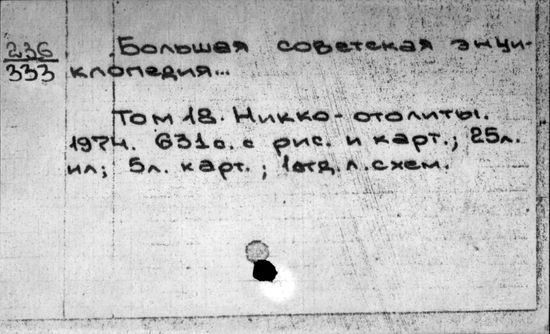 236
333
Большая советская энци-
клопедия...
Том 18. Никко-отолиты.
1974. 631с. с рис. и карт.; 25л.
ил; 5л. карт.; 1отд.л.схем.